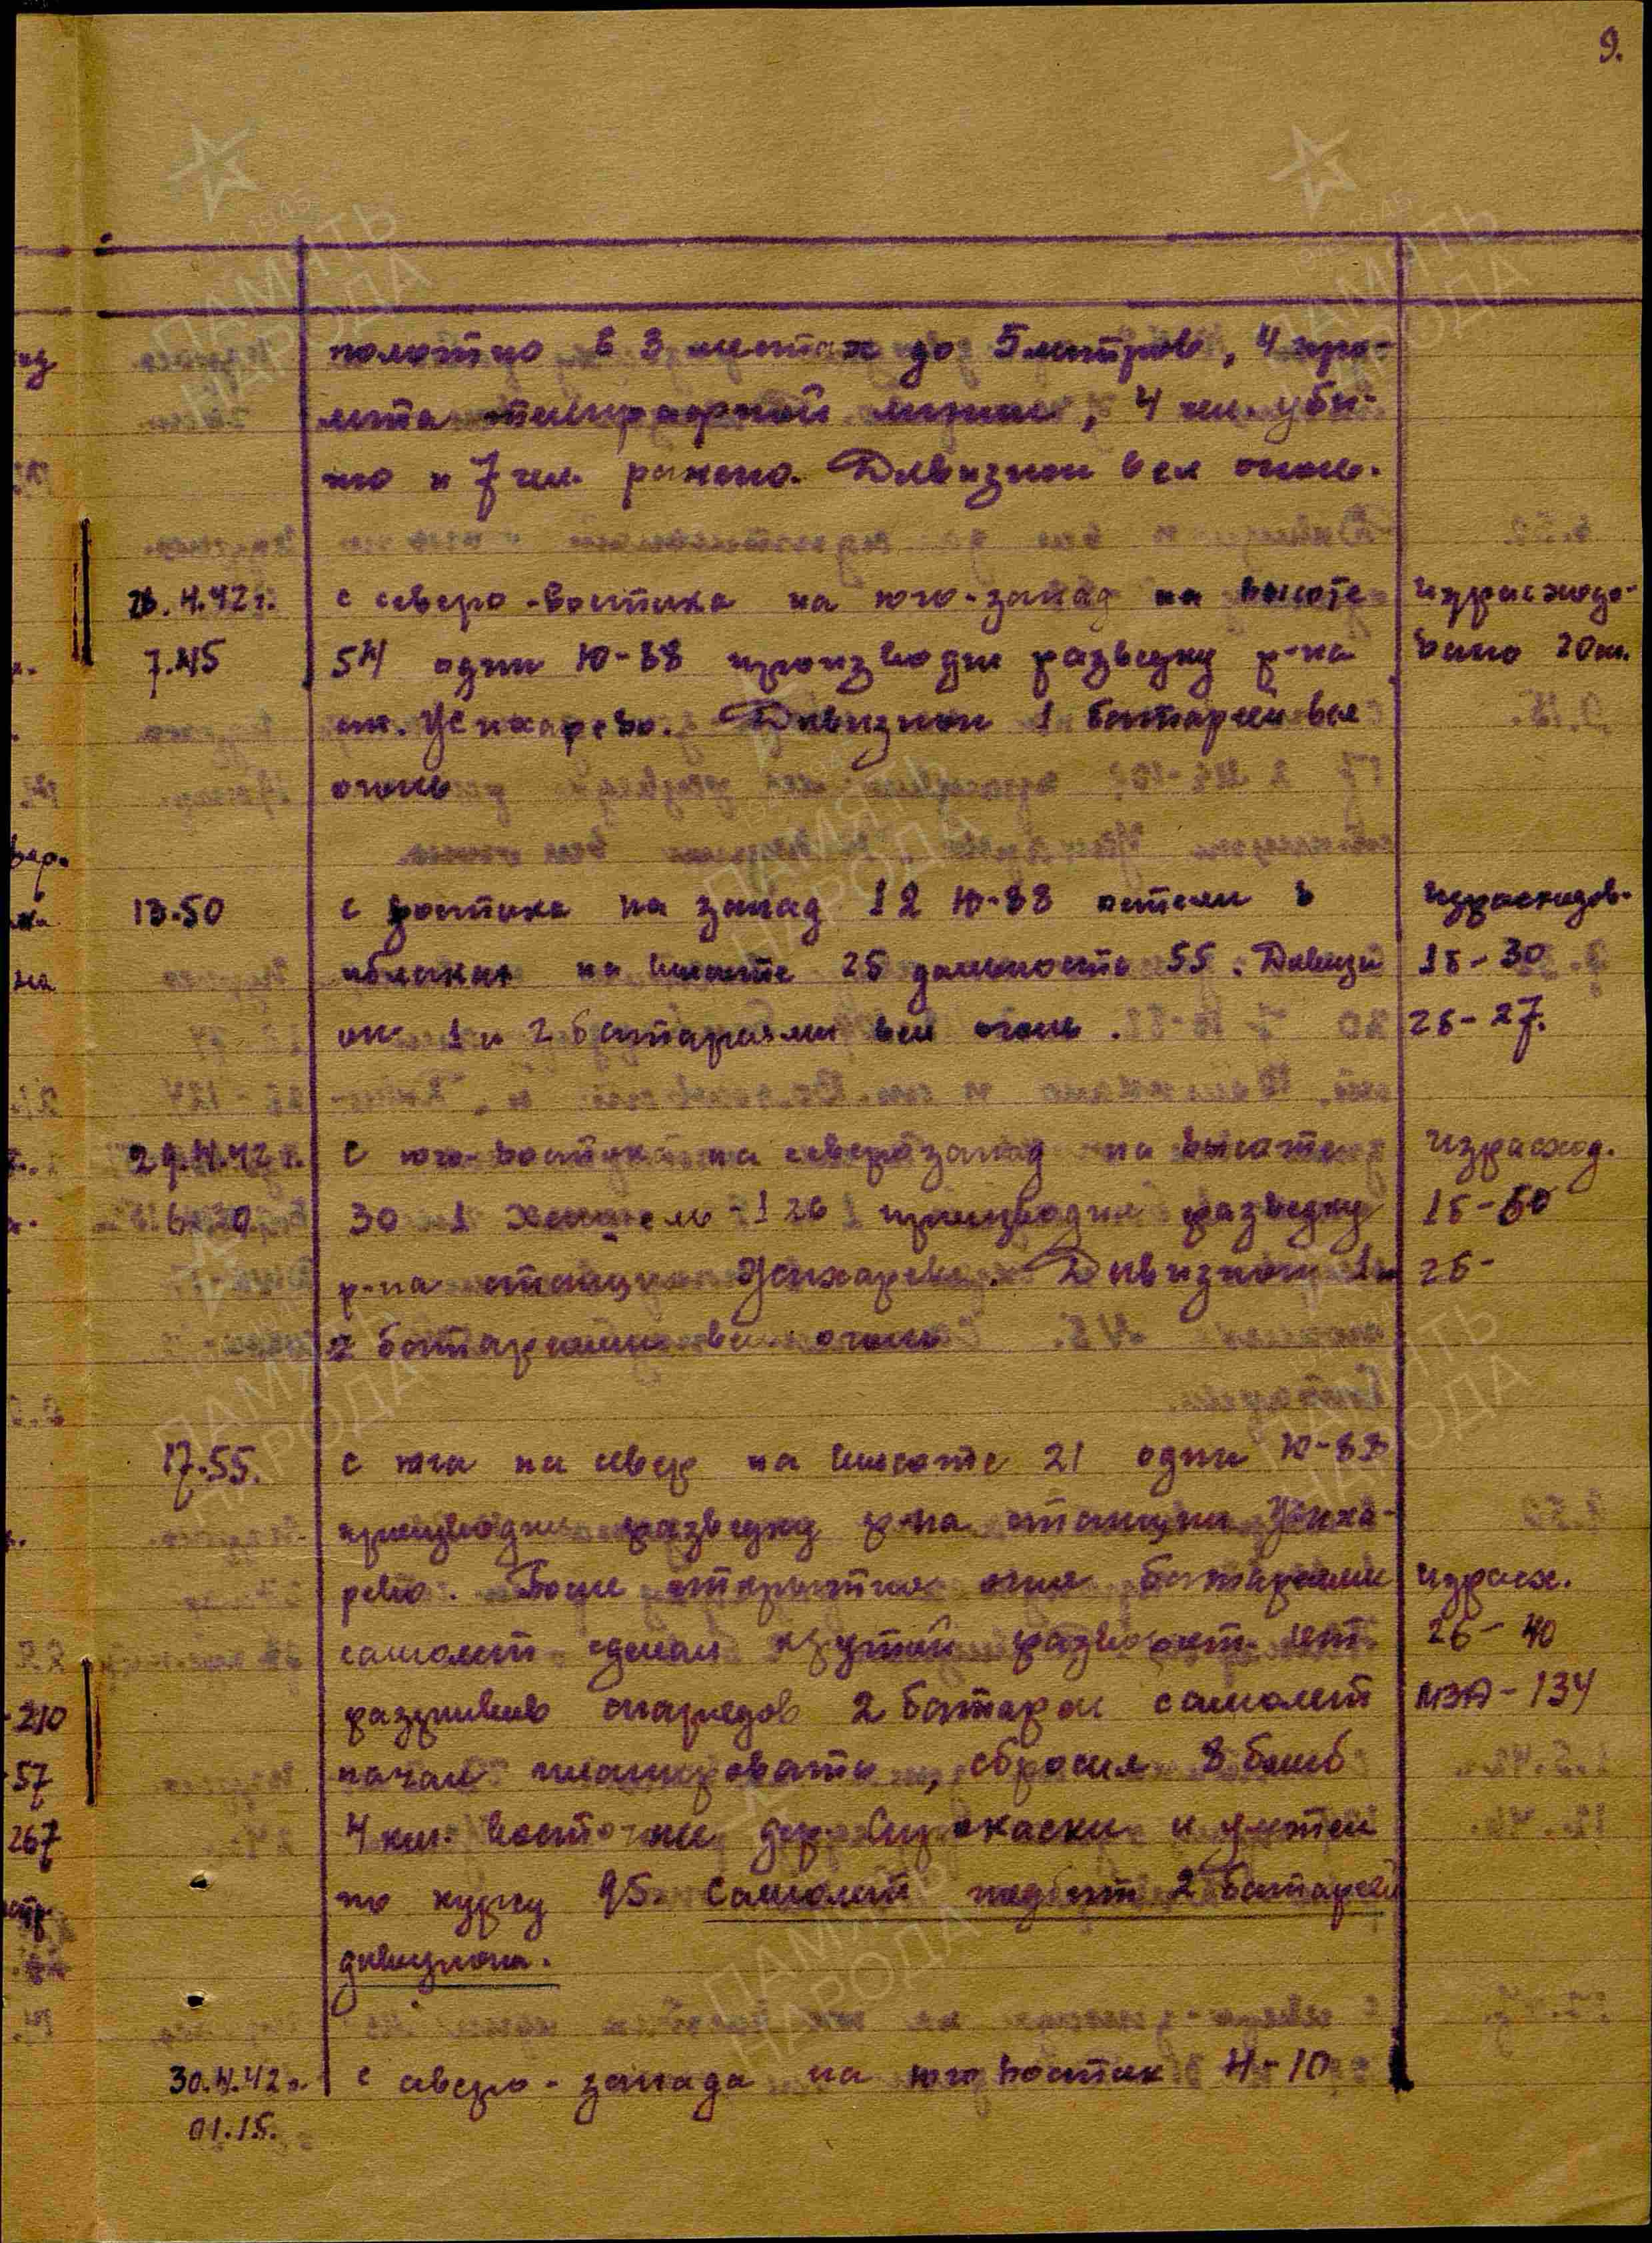 9.
полотно в 3 местах до 5 метров, 4 про-
лета телеграфной линии, 4 чел. уби-
то и 7 чел. ранено. Дивизион вел огонь.
28.4.42 г. с северо-востока на юго-запад на высоте израсходо-
7.45 54 один Ю-88 производил разведку р-на вано 20 шт.
ст. Усихарево. Дивизион 1 батареей вел
огонь
13.50 с востока на запад 12 Ю-88 летели в израсходов.
облаках на высоте 25 дальность 55. Дивизи 1б-30
он 1 и 2 батареями вел огонь. 2б-27.
29.4.42 г. с юго-востока на северозапад на высоте израсход.
6.20 30 1 Хеншель-126 производил разведку 1б-50
р-на станции Усихарево. Дивизион 1 и 2б-
2 батареями вел огонь
17.55. с юга на север на высоте 21 один Ю-88
производил разведку р-на станции Усиха-
рево. После открытия огня батареями израсх.
самолет сделал крутой разворот. От 2б-40
разрывов снарядов 2 батареи самолет МЗА-134
начал планировать, сбросил 8 бомб
4 км. восточнее дер. и улетел
по курсу 95. Самолет подбит 2 батареей
дивизиона.
30.4.42 г. с северо-запада на юго восток 4-10
01.15.
210
57
267